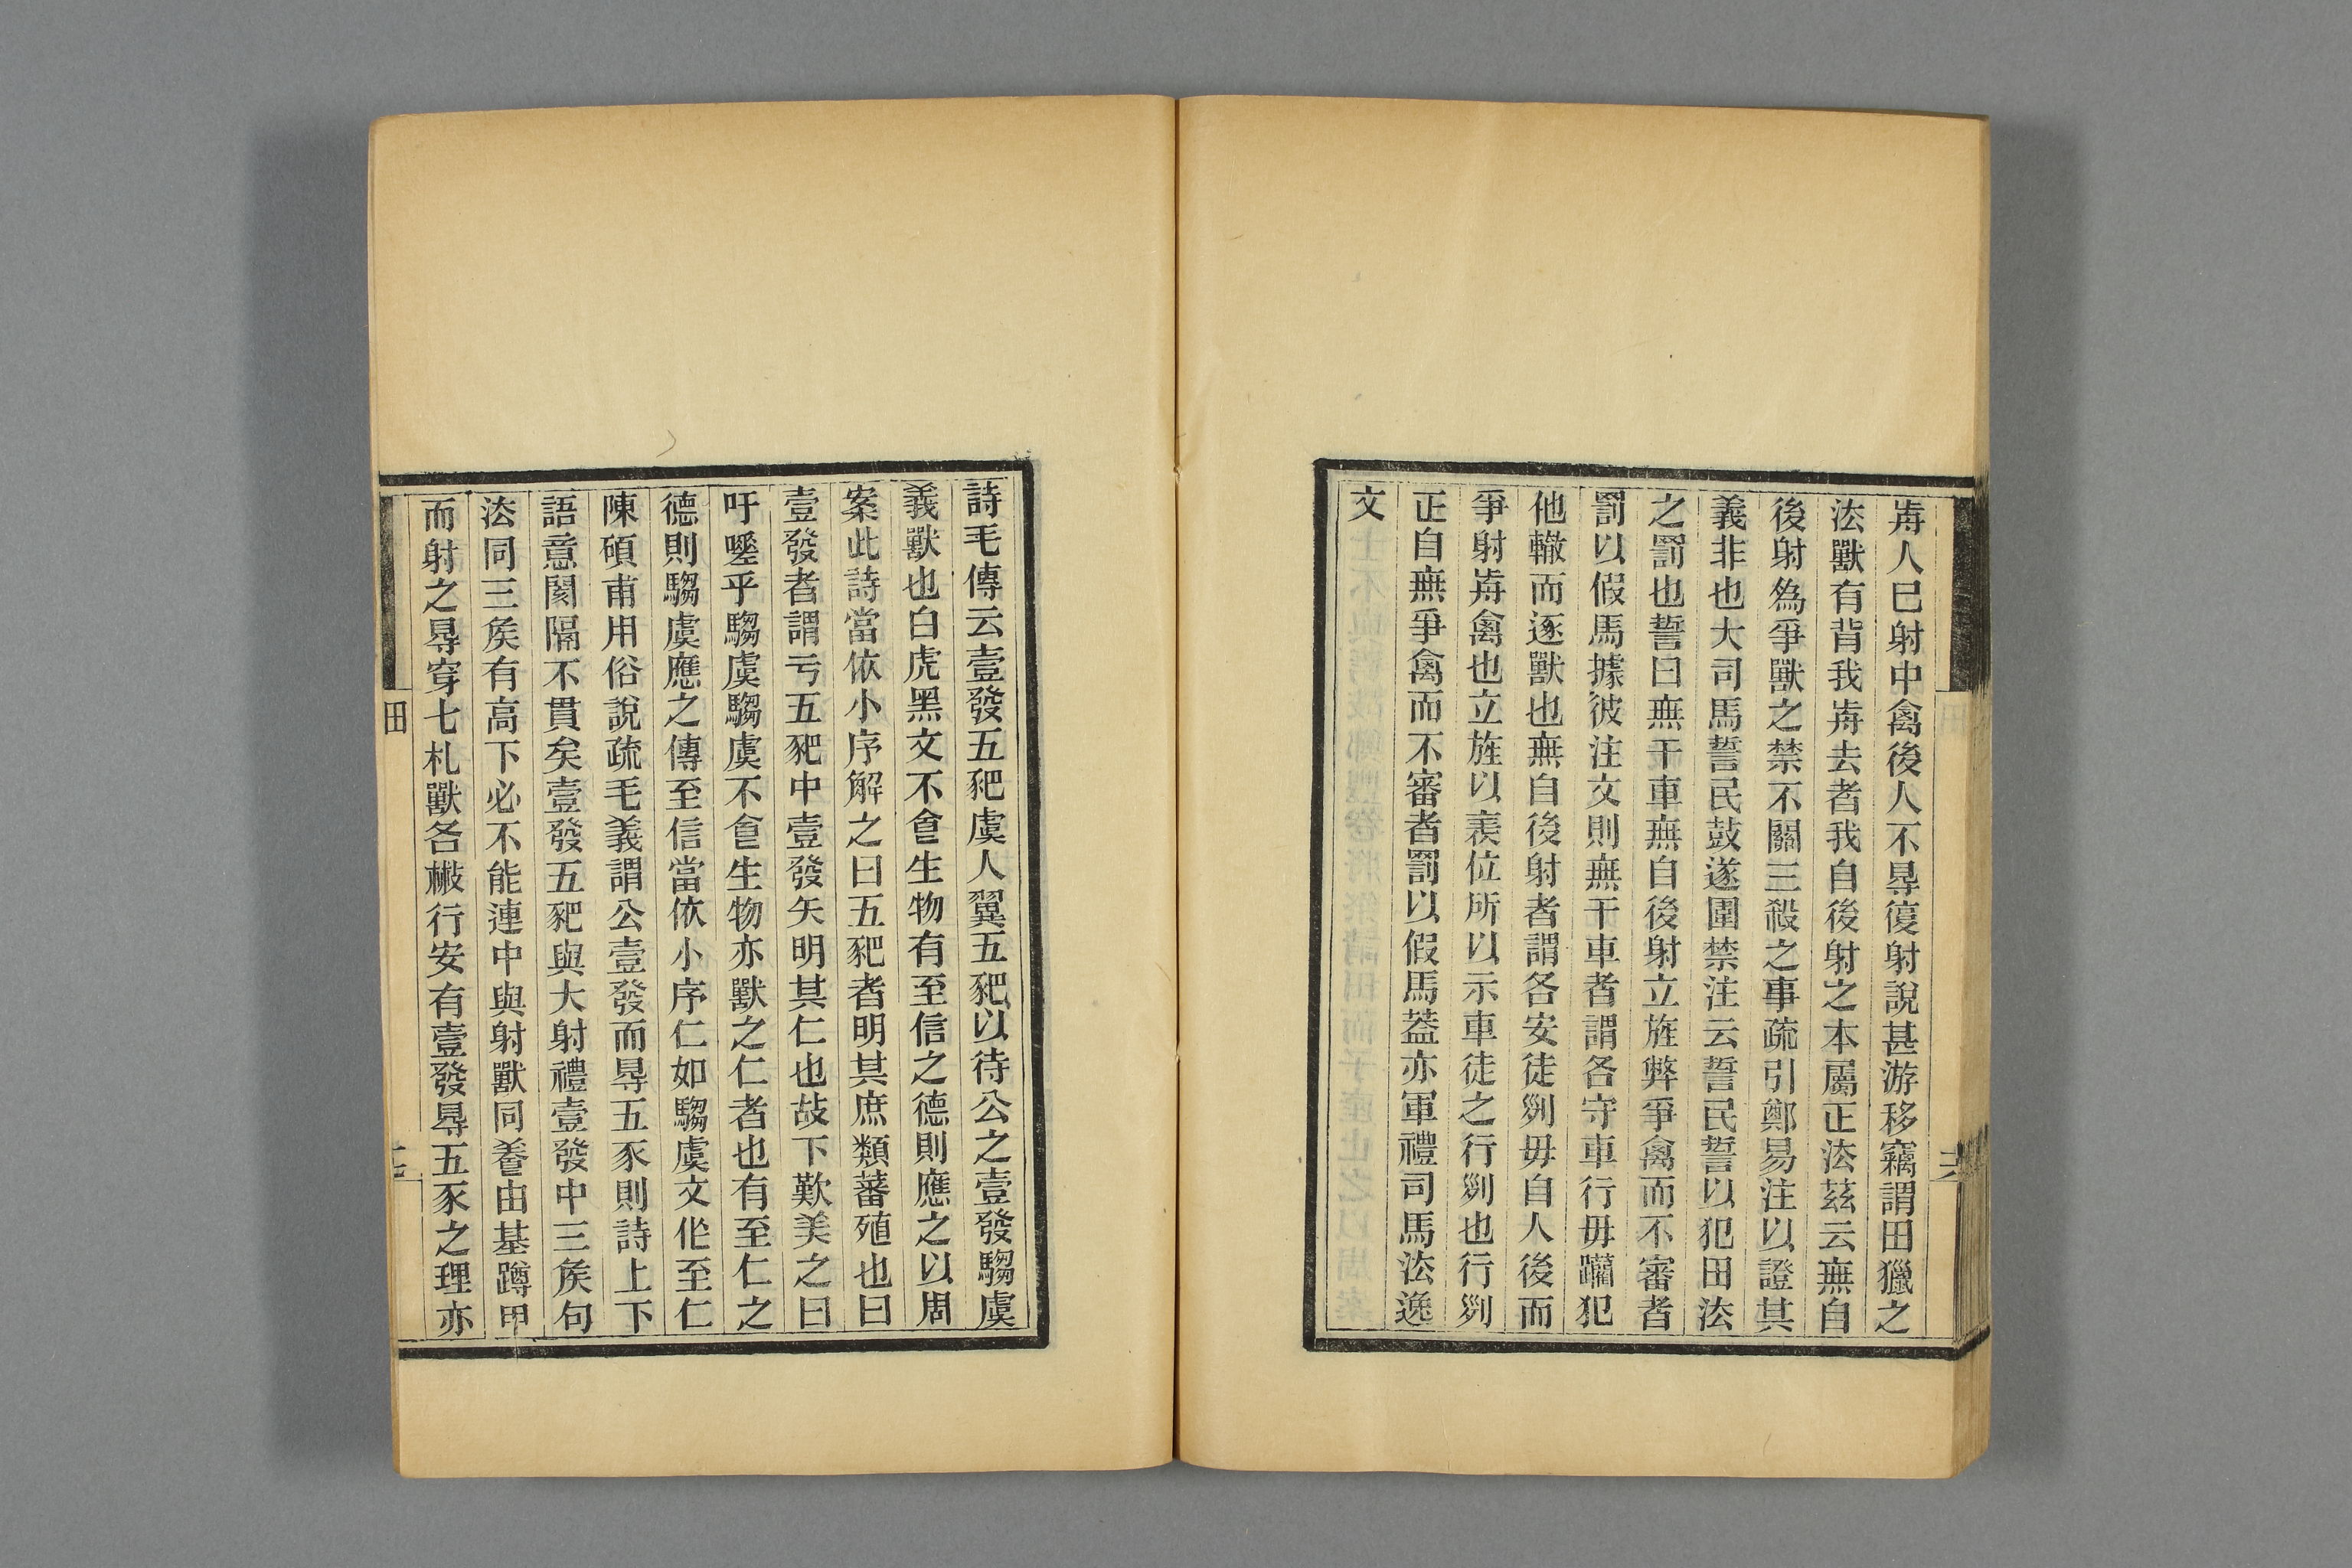 歬人已射中禽後人不㝵復射說甚游移竊謂田獵之
法獸有背我歬去者我自後射之本屬正法茲云無自
後射爲爭獸之禁不關三殺之事疏引鄭易注以證其
義非也大司馬誓民鼓遂圍禁注云誓民誓以犯田法
之罰也誓曰無干車無自後射立旌弊爭禽而不審者
罰以假馬據彼注文則無干車者謂各守車行毋躪犯
他轍而逐獸也無自後射者謂各安徒列毋自人後而
爭射歬禽也立旌以表位所以示車徒之行列也行列
正自無爭禽而不審者罰以假馬蓋亦軍禮司馬法逸
文
六
詩毛傳云壹發五豝虞人翼五豝以待公之壹發騶虞
義獸也白虎黑文不㑹生物有至信之德則應之以周
案此詩當依小序解之曰五豝者明其庶類蕃殖也曰
壹發者謂亏五豝中壹發矢明其仁也故下歎美之曰
吁嗟乎騶虞騶虞不㑹生物亦獸之仁者也有至仁之
德則騶虞應之傳至信當依小序仁如騶虞文作至仁
陳碩甫用俗說疏毛義謂公壹發而㝵五豕則詩上下
語意閡隔不貫矣壹發五豝與大射禮壹發中三矦句
法同三矦有高下必不能連中與射獸同養由基蹲甲
而射之㝵穿七札獸各㪚行安有壹發㝵五豕之理亦
田